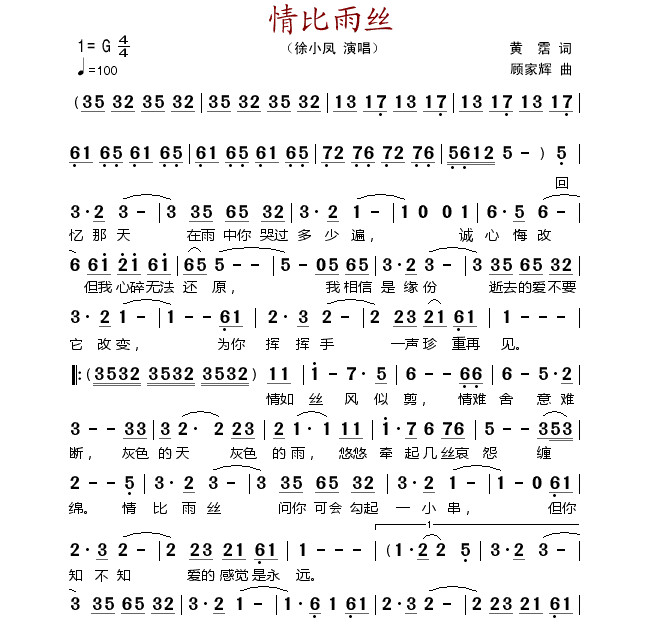 情比雨丝
1= G 4/4
（徐小凤 演唱）
黄 霑 词
♩=100
顾家辉 曲
(35 32 35 32|35 32 35 32|13 17 13 17|13 17 13 17|
61 65 61 65|61 65 61 65|72 76 72 76|5612 5 - ) 5|
回
3·2 3 -|3 35 65 32|3·2 1 -|1 0 0 1|6·5 6 -|
忆那天 在雨中你哭过多少遍， 诚心悔改
6 61 21 61|65 5 -|5 - 05 65|3·2 3 -|3 35 65 32|
但我心碎无法还原， 我相信是缘份 逝去的爱不要
3·2 1 -|1 - - 61|2·3 2 -|2 23 21 61|1 - - -|
它改变， 为你挥挥手 一声珍重再见。
‖:(3532 3532 3532) 11|1 - 7·5|6 - - 66|6 - 5·2|
情如丝风似剪， 情难舍意难
3 - - 33|3 2· 2 23|2 1· 1 11|1·7 6 76|5 - - 353|
断， 灰色的天 灰色的雨，悠悠牵起几丝哀怨缠
2 - - 5|3·2 3 -|3 35 65 35|3·2 1 -|1 - 0 61|
绵。 情比雨丝 问你可会勾起一小串， 但你
1
2·3 2 -|2 23 21 61|1 - - -|(1·2 2 5|3·2 3 -|
知不知 爱的感觉是永远。
3 35 65 32|3·2 1 -|1 1·6 1 61|2·3 2 -|2 23 21 61|